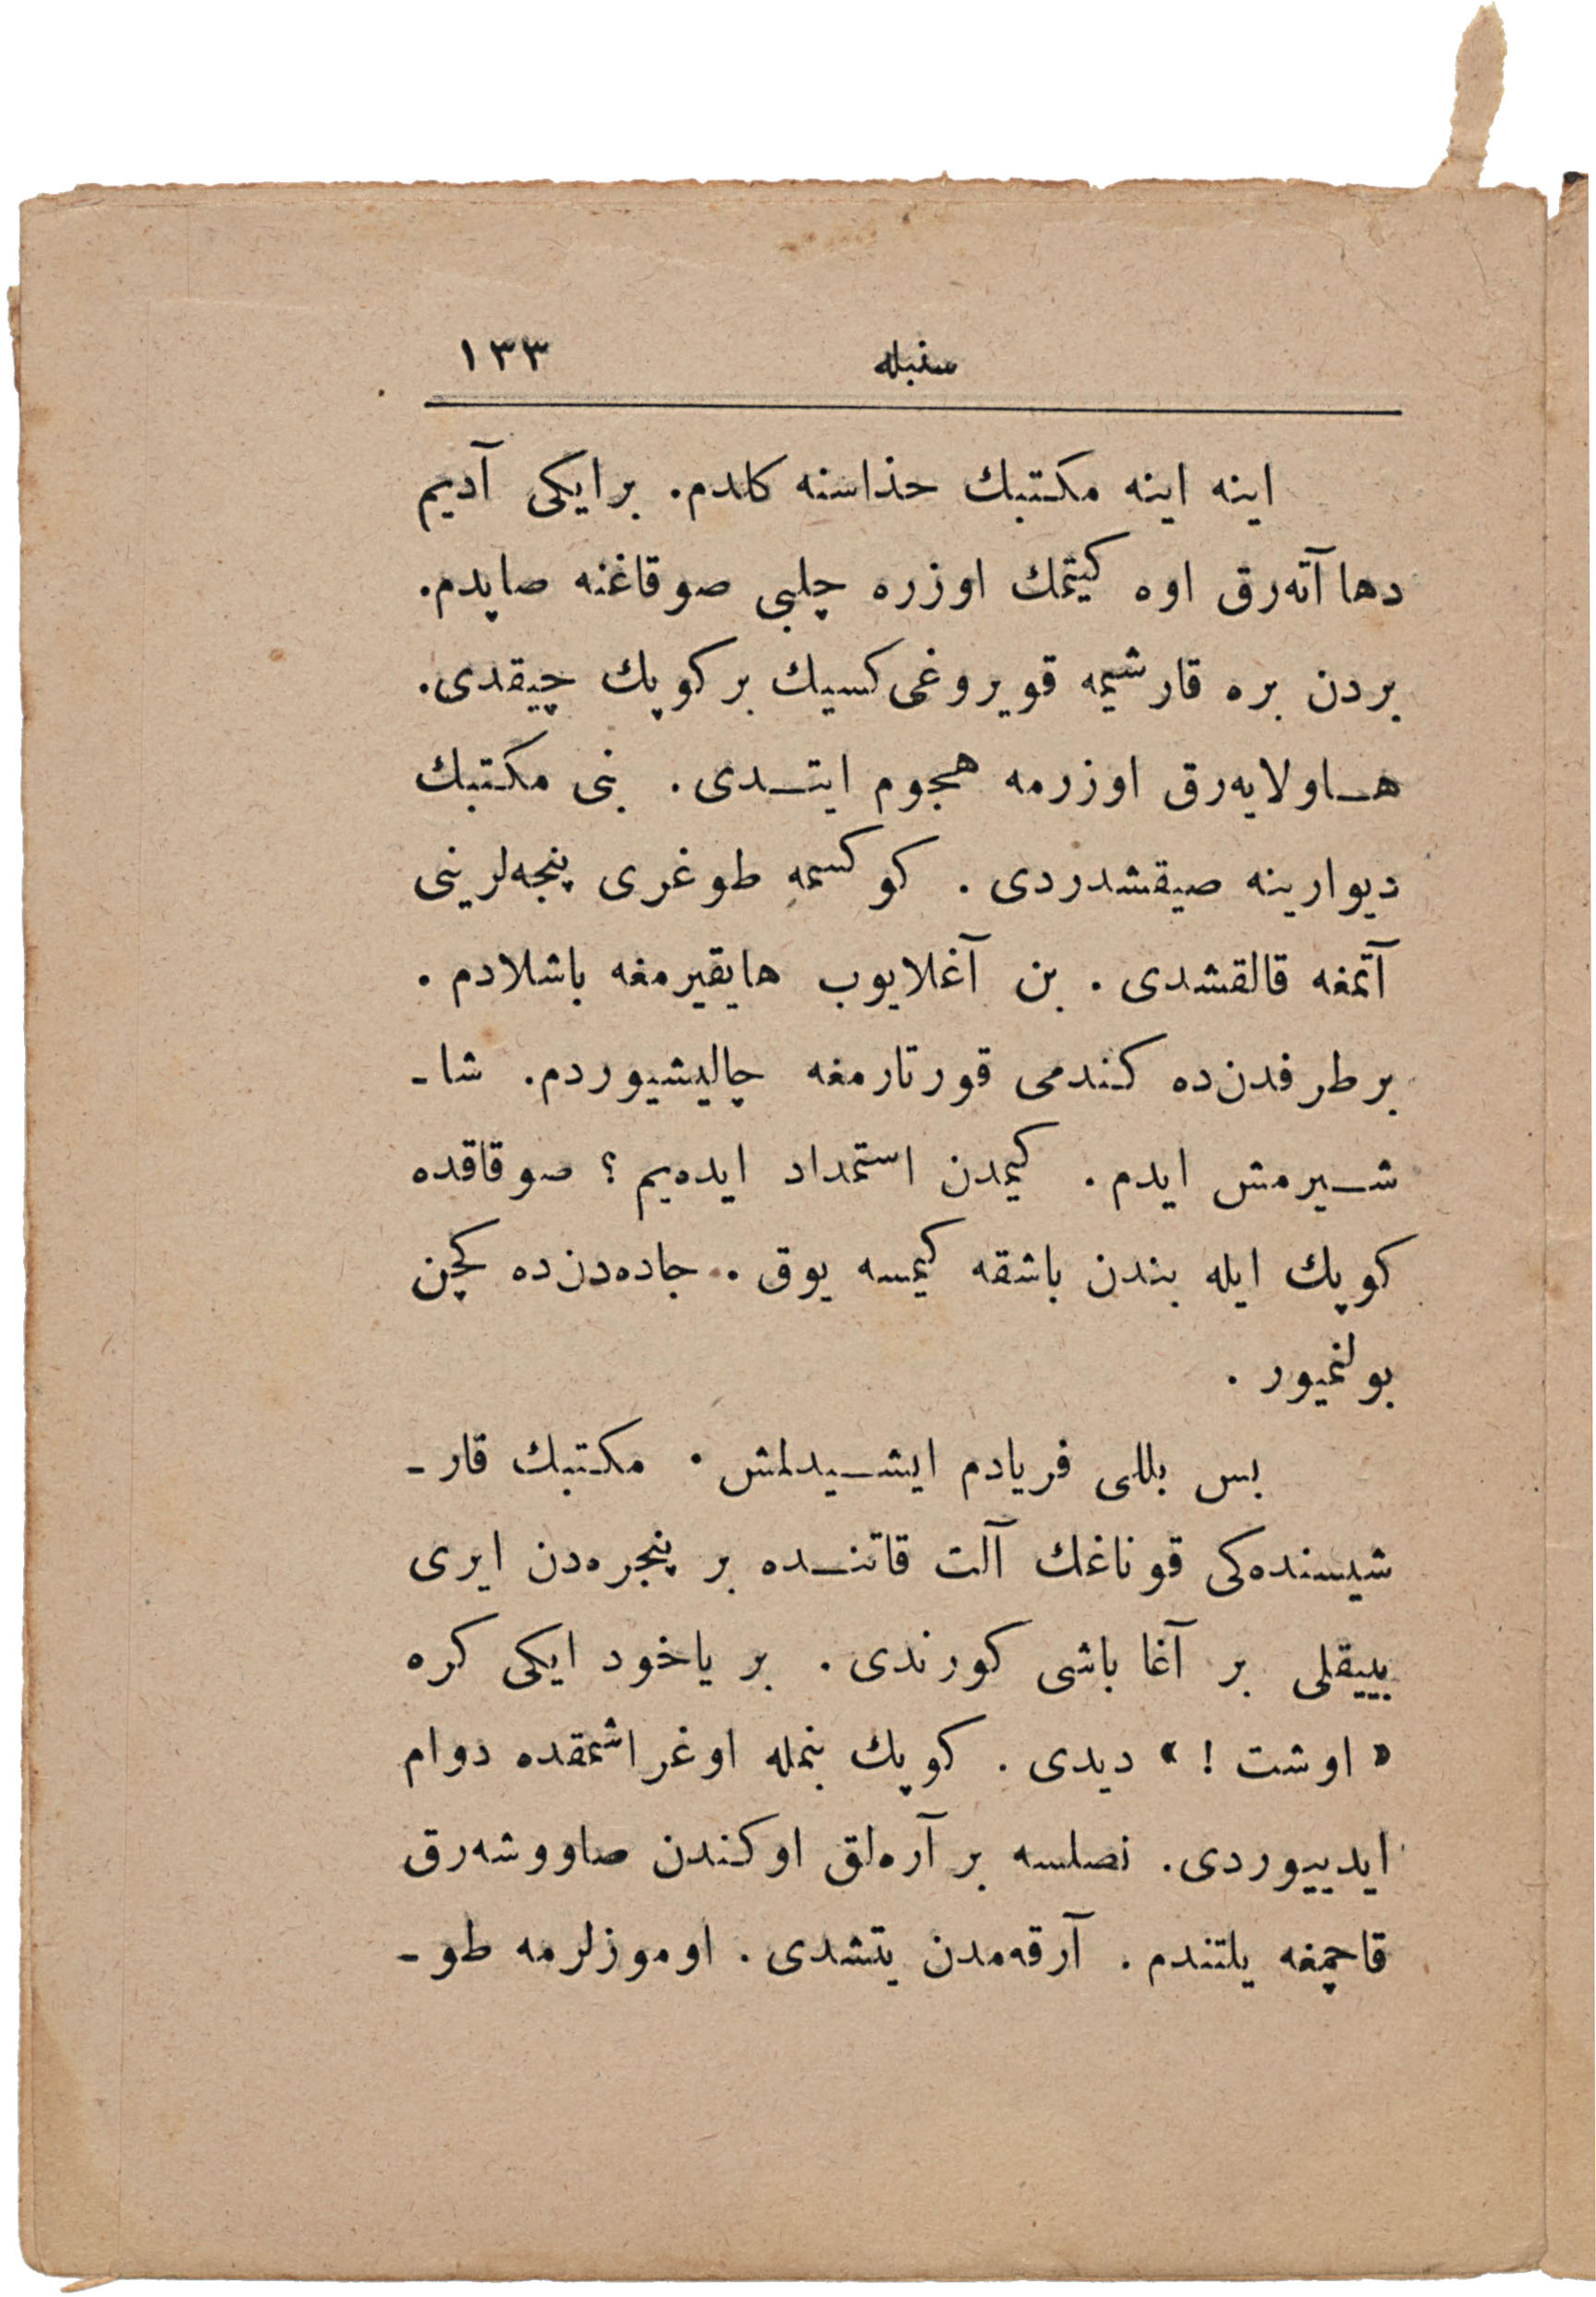 سنبله ١٣٣
اينه اينه مكتبك حذاسنه كلدم. برايكى آديم
دها آته‌رق اوه كيتمك اوزره چلبى صوقاغنه صاپدم.
بردن بره قارشيمه قويروغى كسيك بر كوپك چيقدى.
هـاولايه‌رق اوزرمه هجوم ايتـدى. بنى مكتبك
ديوارينه صيقشدردى. كوكسمه طوغرى پنجه‌لرينى
آتمغه قالقشدى. بن آغلايوب هايقيرمغه باشلادم.
بر طرفدن‌ده كندمى قورتارمغه چاليشيوردم. شا-
شـيرمش ايدم. كيمدن استمداد ايده‌يم؟ صوقاقده
كوپك ايله بندن باشقه كيمسه يوق. جاده‌دن‌ده كچن
بولنميور.
بس بللى فريادم ايشـيدلمش. مكتبك قار-
شيسنده‌كى قوناغك آلت قاتنـده بر پنجره‌دن ايرى
بييقلى بر آغا باشى كورندى. بر ياخود ايكى كره
« اوشت ! » ديدى. كوپك بنمله اوغراشمقده دوام
ايدييوردى. نصلسه بر آره‌لق اوكندن صاووشه‌رق
قاچمغه يلتندم. آرقه‌مدن يتشدى. اوموزلرمه طو-